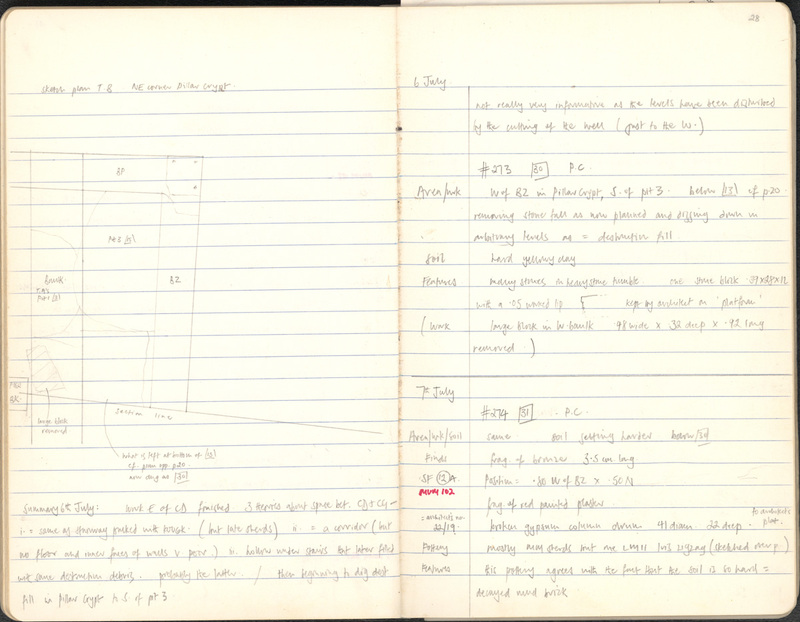 sketch plan T.B NE corner Pillar Crypt.
BP
BZ
baulk
large block
removed
section line
what is left at bottom of (13)
cf. plan opp. p20
now dug as [30]
Summary 6th July: Work E of CD finished 3 theories about space bet. CD + CG –
i = same as stairway packed with
(but late sherds) ii. = a corridor (but
no floor and inner faces of walls v. poor) iii. hollow under stairs but later filled
with some destruction debris. probably the latter. / then beginning to dig dest
fill in Pillar Crypt to S of pit 3
28
6 July
not really very informative as the levels have been disturbed
by the cutting of the well (just to the W.)
#273 [30] P.C.
Area/wk W of BZ in Pillar Crypt, S. of pit 3. below (13) cf p.20
removing stone fall as now planned and digging down in
arbitrary levels as = destruction fill
Soil hard yellow clay
Features many stones in heavy stone tumble one stone block
with a .05 lip kept by architect on 'platform'
(Work large block in W. baulk .48 wide x 32 deep x .92 long
removed.)
7th July
#274 [31] P.C.
Area/wk/soil same soil getting harder below [30]
Finds frag. of bronze 3.5 cm. long
SF (12) A. Position = .50 W of BZ x .50 N
MUM 102
frag. of red painted plaster
= architect's no. 22/19. broken gypsum column drum 41 diam. 22 deep. to architect's plat.
Pottery mostly sherds but one LM II (sketched over p)
Features this pottery agrees with the fact that the soil is so hard =
decayed mud brick